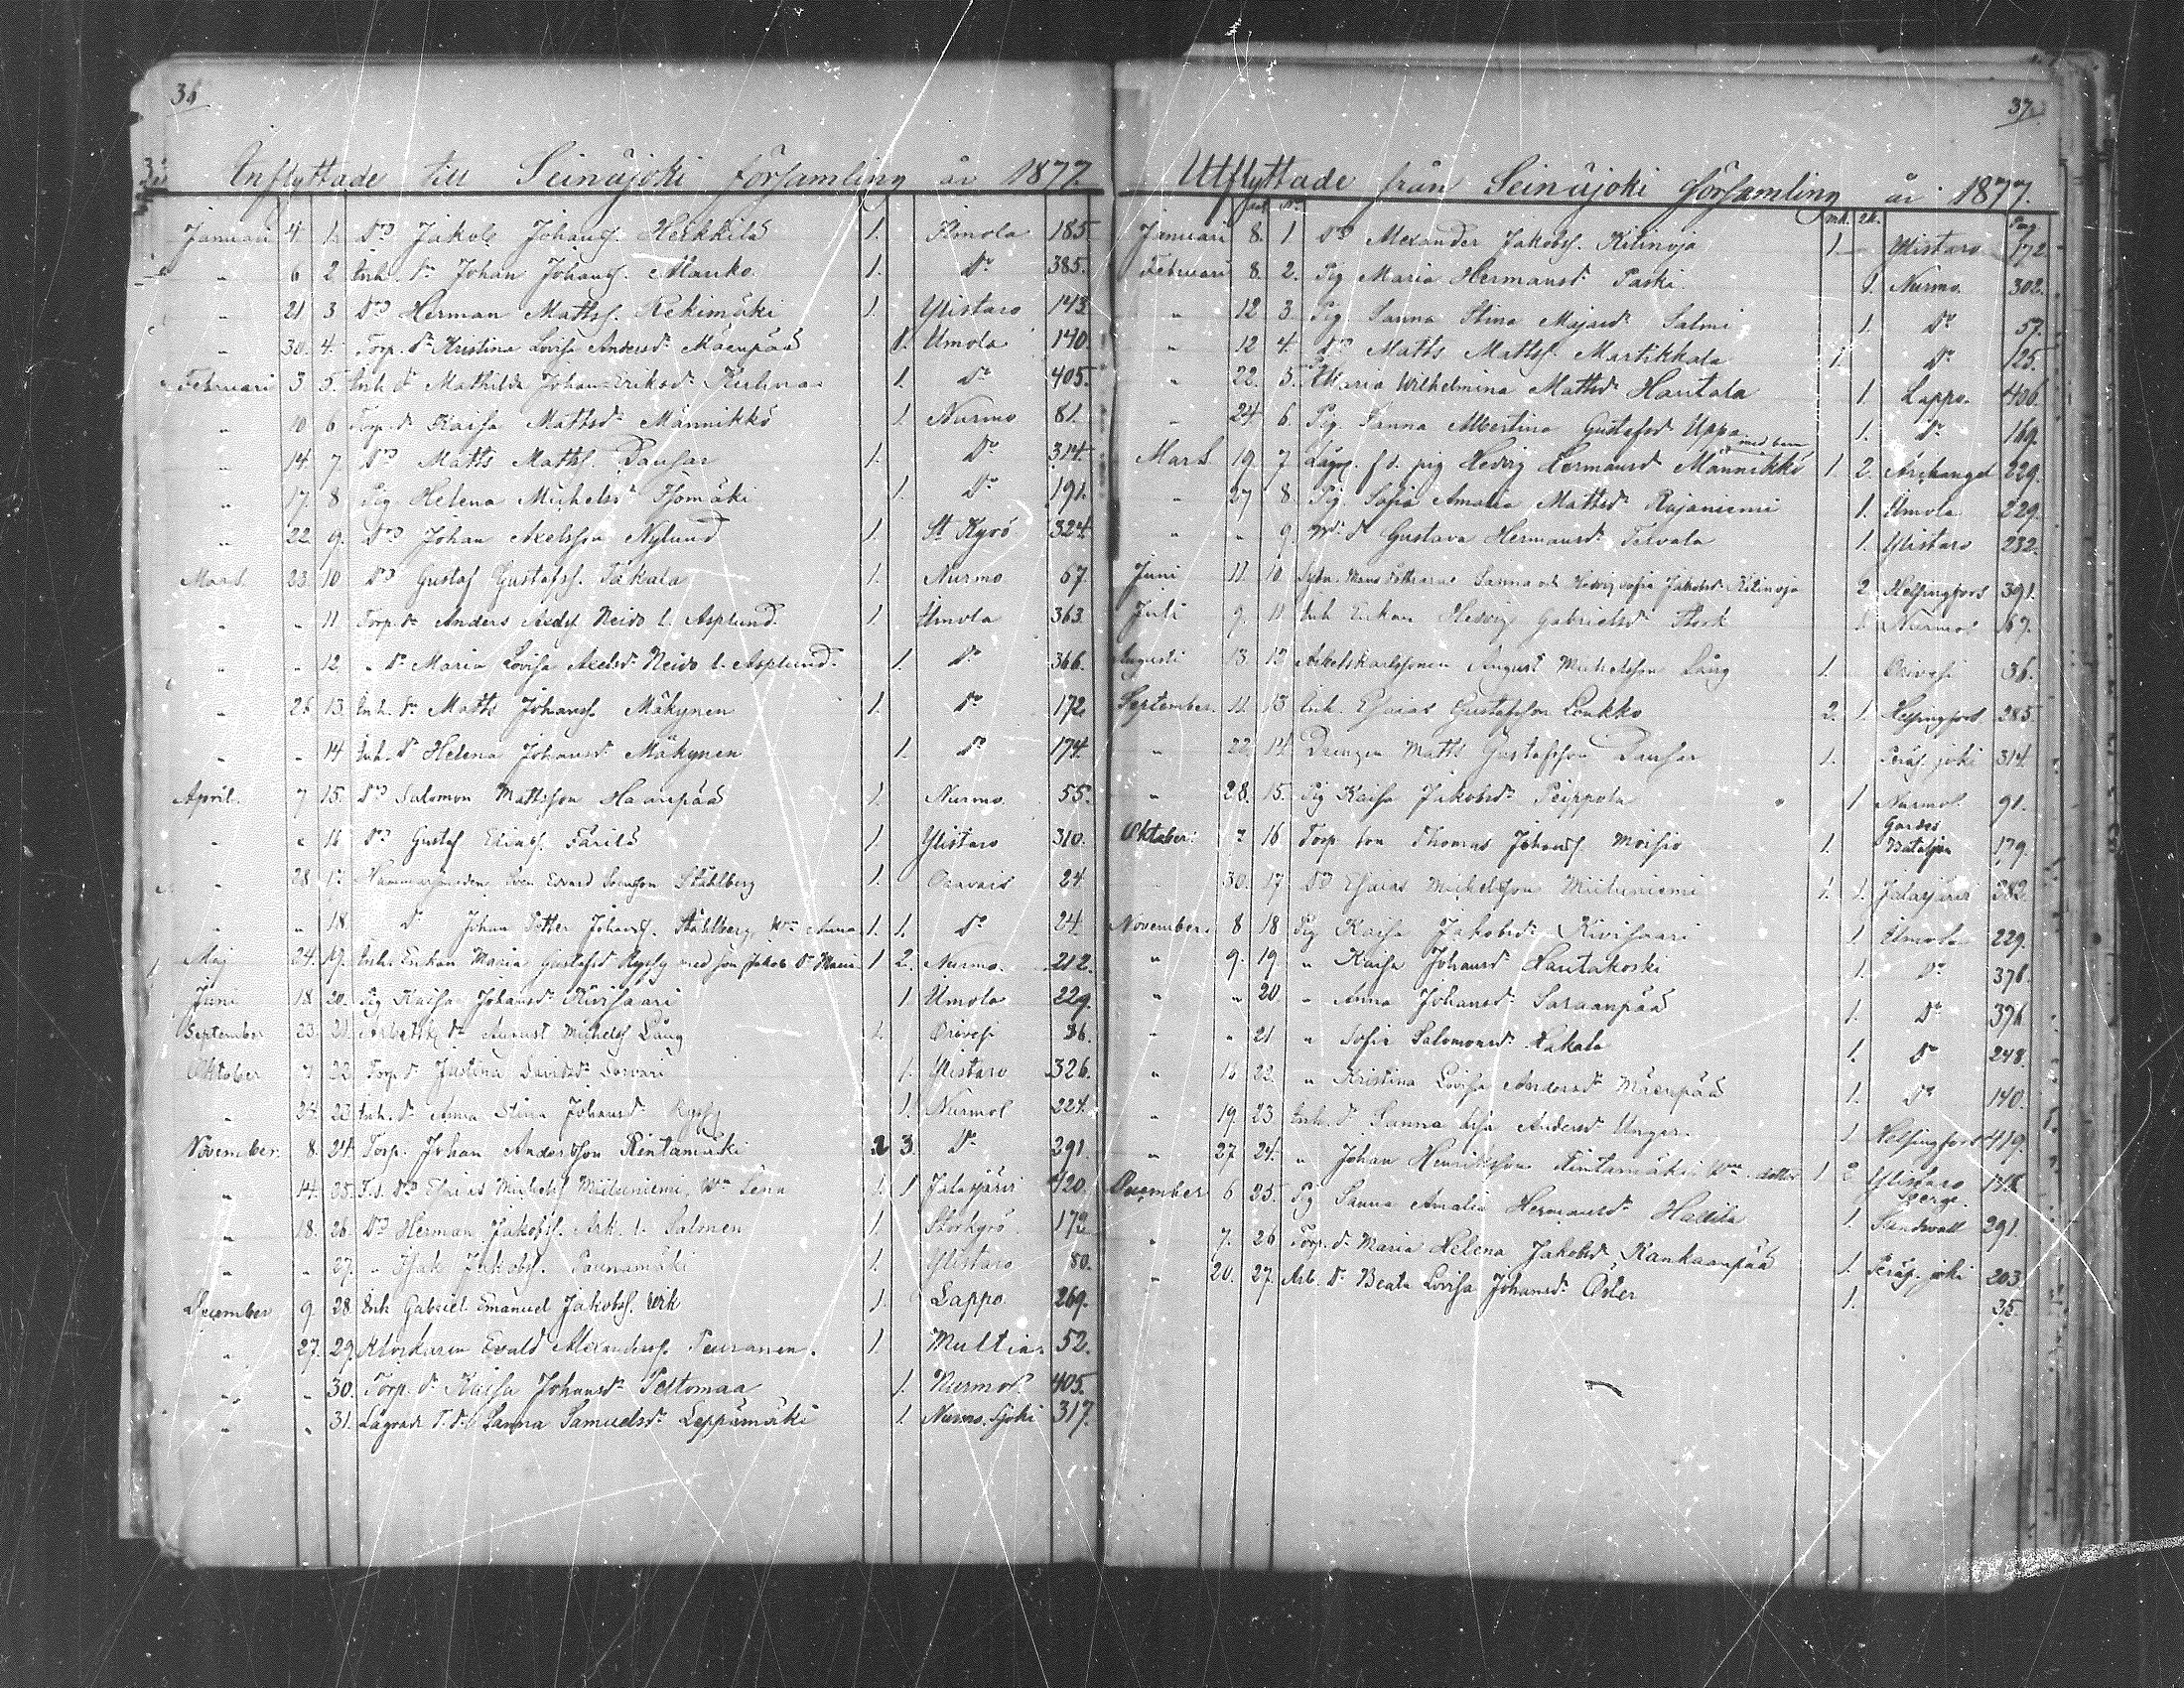 36
Inflyttade till Seinäjoki församling år 1877.
Januari 4. 1. Dr. Jakob Johansf. Heikkilä 1. Ilmola 185.
" 6 2. Inh. Dr Johan Johansf. Marko 1. Do 385.
" 21 3. Dr. Herman Mattsf. Rekimäki 1. Ylistaro 143.
" 30. 4. Torp. Dr Kristina Lovisa Andersdr Mäenpää 1. Ilmola 140.
Februari 3 5. Inh. Dr Mathilda Johan Eriksdr 1. Do 405.
" 10 6 Torp. Dr Kaisa Mattsdr Männikkö 1. Nurmo 81.
" 14. 7. Dr. Matts Mattsf. Dansar 1. Do 314.
" 17. 8 Pig. Helena Michelsdr Isomäki 1. Do 191.
" 22. 9. Dr. Johan Axelsson Nylund 1. St Kyrö 324.
Mars. 23. 10 Dr. Gustaf Gustafsf. Takala 1. Nurmo 67.
" " 11 Torp. Dr Anders Axelsf. Neiro l. Asplund. 1. Ilmola 363.
" " 12. " Dr Maria Lovisa Axelsdr Neiro l. Asplund. 1. Do 366.
" 26 13. Inh. Dr Matts Johansf. Mäkynen 1. Do 172.
" " 14 Inh. Dr Helena Johansdr Mäkynen 1. Do 174.
April. 7 15. Dr. Salomon Mattsson Haanpää 1. Nurmo. 55.
" " 16 Dr. Gustaf Eliasf. Färilä 1. Ylistaro 310.
" 28 17 Hammarsmeden Sven Edvard Svensson Ståhlberg 1. Oravais 24.
" " 18. Dr Johan Petter Johansf. Ståhlberg, Wm Anna 1. 1. Do 24.
Maj 24. 19. Inh. Enkan Maria Gustafsdr Ryssy med son Jakob Dr Maria 1 2. Nurmo. 212.
Juni 18 20. Pig Kaisa Johansdr Kivisaari 1 Ilmola 229.
September 23. 21. Arbetsk. Dr August Michelsf Lång 1. Orivesi 36.
Oktober 7 22. Torp. Dr Justina Davidsdr 1. Ylistaro 326.
" 24. 23. Inh. Dr Anna Stina Johansdr Ryssy 1. Nurmo 224.
November. 8. 24. Torp. Johan Andersson Rintamäki 2 3. Do 291.
" 14. 25. F.d. Dr. Esaias Michelsf Miiluniemi, Wm Lena 1. 1 Jalasjärvi 420.
" 18. 26. Dr. Herman Jakobsf. Ark. l. Salonen 1. Storkyro 172
" " 27. " Isak Jakobsf. Paunamäki 1. Ylistaro 80.
December 9. 28. Inh Gabriel Emanuel Jakobsf. Wik 1. Lappo. 269.
" 27. 29. Klockaren Evald Alexandersf. Peuranen. 1. Multia. 52.
" " 30. Torp. Dr Kaisa Johansdr Peltomaa 1. Nurmo. 405.
" " 31. Lagradt T.d. Sanna Samuelsdr Leppämäki 1. Nurmo, Sjoki 317.
37.
Utflyttade från Seinäjoki församling år 1877.
dat. No. mk. qk. Pag
Januari 8. 1 Dr. Alexander Jakobsf. Kilinoja 1. Ylistaro 172.
Februari 8. 2. Pig Maria Hermansdr Paski 1. Nurmo. 302.
" 12 3 Pig. Sanna Stina Majasdr Salmi 1. Do 57.
" 12 4. Dr. Matts Mattsf. Martikkala 1. Do 125.
" 22. 5. Maria Wilhelmina Mattsdr Hautala 1. Lappo. 406.
" 24 6. Pig. Sanna Albertina Gustafsdr Uppa 1. Do 169.
Mars. 19. 7 f.d. pig Hedvig Hermansdr Männikkö med barn 1. 2. Archangel 229.
" 27 8. Pig. Sofia Amalia Mattsdr Rajaniemi 1. Ilmola 229.
" " 9. Gustava Hermansdr Talvala 1. Ylistaro 232.
Juni 11. 10. Sanna och Hedvig Sofia Jakobsdr Kilinoja 2 Helsingfors 391.
Juli 9. 11. Inh Enkan Hedvig Gabrielsdr Stork 1. Nurmo 67.
Augusti 13. 12 Arbetskarlssonen August Michelsson Lång 1. Orivesi 36.
September. 11. 13 Inh. Esaias Gustafsson Loukko 2. 1. Helsingfors 285.
" 22 14. Drengen Matts Gustafsson Dansar 1. Peräs. joki 314.
" 28. 15. Pig Kaisa Jakobsdr Peippola 1 Nurmo. 91.
Oktober. 7 16 Torp. son Thomas Johansf Moisio 1. Gardes Bataljon 179.
" 30. 17. Dr. Esaias Michelsson Miiluniemi 1. 1. Jalasjärvi 282.
November. 8 18 Pig Kaisa Jakobsdr Kivisaari 1 Ilmola 229.
" 9. 19. " Kaisa Johansdr Lautakoski 1. Do 376.
" " 20 " Anna Johansdr Saraanpää 1. Do 376
" " 21 " Sofia Salomonsdr Takala 1. Do 248.
" 16 22. " Kristina Lovisa Andersdr Mäenpää 1. Do 140.
" 19. 23. Inh. Dr Sanna Lisa Andersdr Unger. 1 Helsingfors 419.
" 27. 24. " Johan Henriksson Rintamäki, Wm dotter 1 2. Ylistaro
December 6 25. Pig Sanna Amalia Hermansdr Hallila 1. Sverge. Sundsvall 291.
" 7. 26 Torp. Dr Maria Helena Jakobsdr Kankaanpää 1. Peräs. joki 203.
" 20. 27. Arb. Dr Beata Lovisa Johansdr Öster 1. 35.